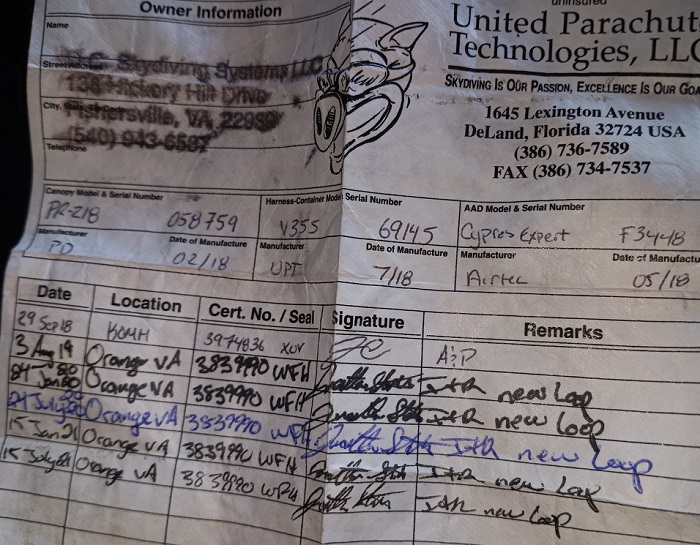 Owner Information
uninsured
Name
United Parachut
Technologies, LLC
Street Address
Skydiving Systems LLC
Hickory Hill Drive
SKYDIVING IS OUR PASSION, EXCELLENCE IS OUR GOA
City,
Fishersville, VA 22939
(540) 943-6587
Telephone
1645 Lexington Avenue
DeLand, Florida 32724 USA
(386) 736-7589
FAX (386) 734-7537
Canopy Model & Serial Number
Harness-Container Model Serial Number
AAD Model & Serial Number
PR-218 058759 V355 69145 Cypres Expert F3448
Manufacturer Date of Manufacture Manufacturer Date of Manufacture Manufacturer Date of Manufactu
PD 02/18 UPT 7/18 Airtec 05/18
Date Location Cert. No. / Seal Signature Remarks
29 Sep 18 KOMH 3974836 XUV A&P
3 Aug 19 Orange VA 3839990 WFH I+R new Loop
24 Jan 20 Orange VA 3839990 WFH I+R new loop
24 July 20 Orange VA 3839990 WFH I+R new Loop
15 Jan 21 Orange VA 3839990 WFH I+R new Loop
15 July 21 Orange VA 3839990 WFH I+R new loop